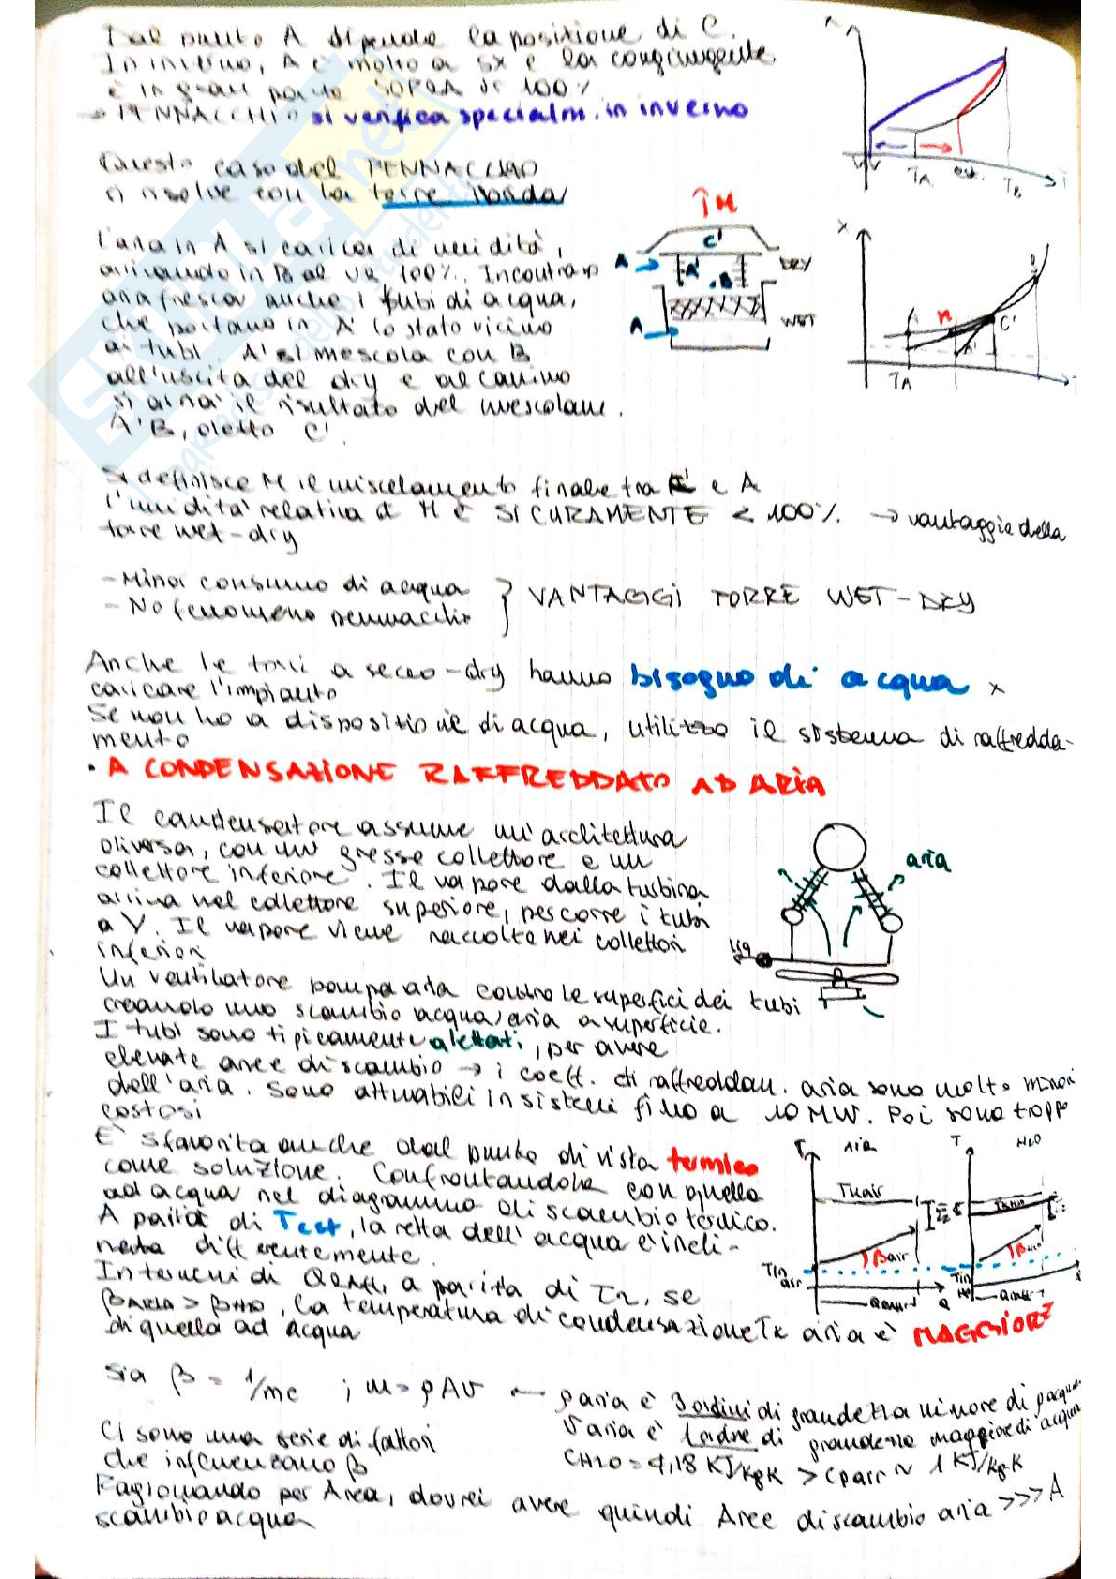 Dal punto A dipende la posizione di C.
In inverno, A è molto a sx e la congiungente
è in gran parte SOPRA il 100%
→ PENNACCHIO si verifica specialm. in inverno
Questo caso del PENNACCHIO
si risolve con la torre ibrida
L'aria in A si carica di umidità,
arrivando in B al UR 100%. Incontrano
aria fresca anche i tubi di acqua,
che portano in A' lo stato vicino
ai tubi. A' si mescola con B
all'uscita del dry e al camino
si avrà il risultato del mescolam.
A'B, detto C'.
Si definisce M il miscelamento finale tra C' e A
L'umidità relativa di M è SICURAMENTE < 100% → vantaggio della
torre wet-dry
- Minor consumo di acqua
- No fenomeno pennacchio
} VANTAGGI TORRE WET-DRY
Anche le torri a secco-dry hanno bisogno di acqua x
caricare l'impianto
Se non ho a disposizione di acqua, utilizzo il sistema di raffredda-
mento
• A CONDENSAZIONE RAFFREDDATO AD ARIA
Il condensatore assume un'architettura
diversa, con un grosso collettore e un
collettore inferiore. Il vapore dalla turbina
arriva nel collettore superiore, percorre i tubi
a V. Il vapore viene raccolto nei collettori
inferiori
Un ventilatore pompa aria contro le superfici dei tubi
creando uno scambio acqua/aria a superficie.
I tubi sono tipicamente alettati, per avere
elevate aree di scambio → i coeff. di raffreddam. aria sono molto minori
dell'aria. Sono attuabili in sistemi fino a 10 MW. Poi sono troppo
costosi
E' sfavorita anche dal punto di vista termico
come soluzione. Confrontandola con quella
ad acqua nel diagramma di scambio termico.
A parità di Test, la retta dell'acqua è incli-
nata differentemente.
In termini di QRAff, a parità di τ2, se
βARIA > βH2O, la temperatura di condensazione Tk aria è MAGGIORE
di quella ad acqua
Sia β = 1/mc ; m = ρAv ← ρ aria è 3 ordini di grandezza minore di ρacqua
v aria è 1 ordine di grandezza maggiore di acqua
Ci sono una serie di fattori
CH2O = 4,18 KJ/kgK > Cparr ~ 1 KJ/kgK
che influenzano β
Ragionando per Area, dovrei avere quindi Aree di scambio aria >>> A
scambio acqua
x
TA
est.
TB
↑M
C'
A
A'
B
DRY
A
WET
x
M
C'
TA
aria
liq
T
Air
TKair
βair
Tin
air
QRAff
Q
T
H2O
TKH2O
Tin
H2O